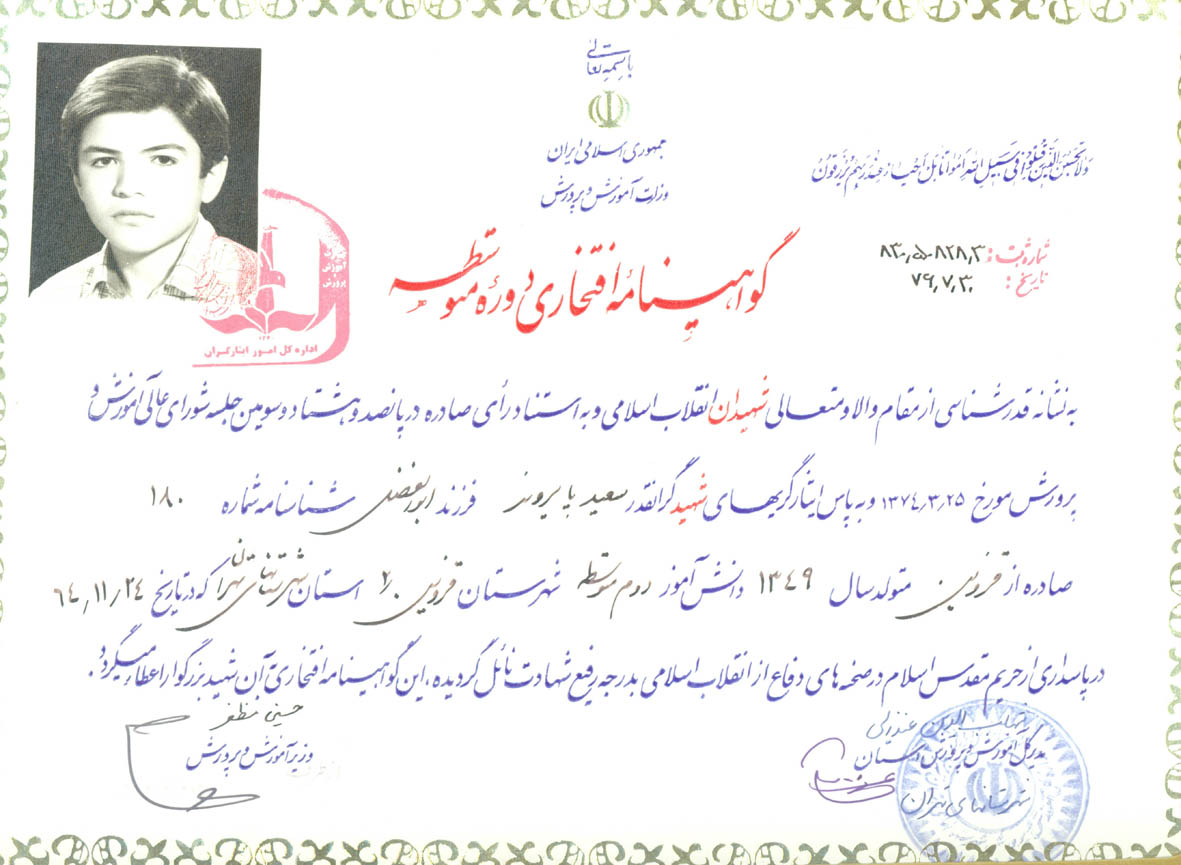 باسمه تعالی
جمهوری اسلامی ایران
وزارت آموزش و پرورش
ولا تحسبن الذین قتلوا فی سبیل الله امواتا بل احیاء عند ربهم یرزقون
شماره ثبت: ۸۳۰٫۵۰۸۲۸٫۳
تاریخ: ۷۹٫۷٫۳۰
گواهینامهٔ افتخاری دوره متوسطه
اداره کل امور ایثارگران
به نشانه قدرشناسی از مقام والا و متعالی شهیدان انقلاب اسلامی و به استناد رأی صادره در پانصد و هشتاد و سومین جلسه شورای عالی آموزش و
پرورش مورخ ۱۳۷۴٫۳٫۲۵ و به پاس ایثارگریهای شهید گرانقدر سعید فرزند ابوالفضل شناسنامه شماره ۱۸۰
صادره از قزوین متولد سال ۱۳۴۹ دانش آموز دوم متوسطه شهرستان قزوین ۲۰ استان شهرستانهای تهران که در تاریخ ۶۴٫۱۱٫۲۴
در پاسداری از حریم مقدس اسلام در صحنه های دفاع از انقلاب اسلامی بدرجه رفیع شهادت نائل گردیده، این گواهینامه افتخاری به آن شهید بزرگوار اعطاء میگردد.
حسین مظفر
وزیر آموزش و پرورش
مدیرکل آموزش و پرورش استان
شهرستانهای تهران